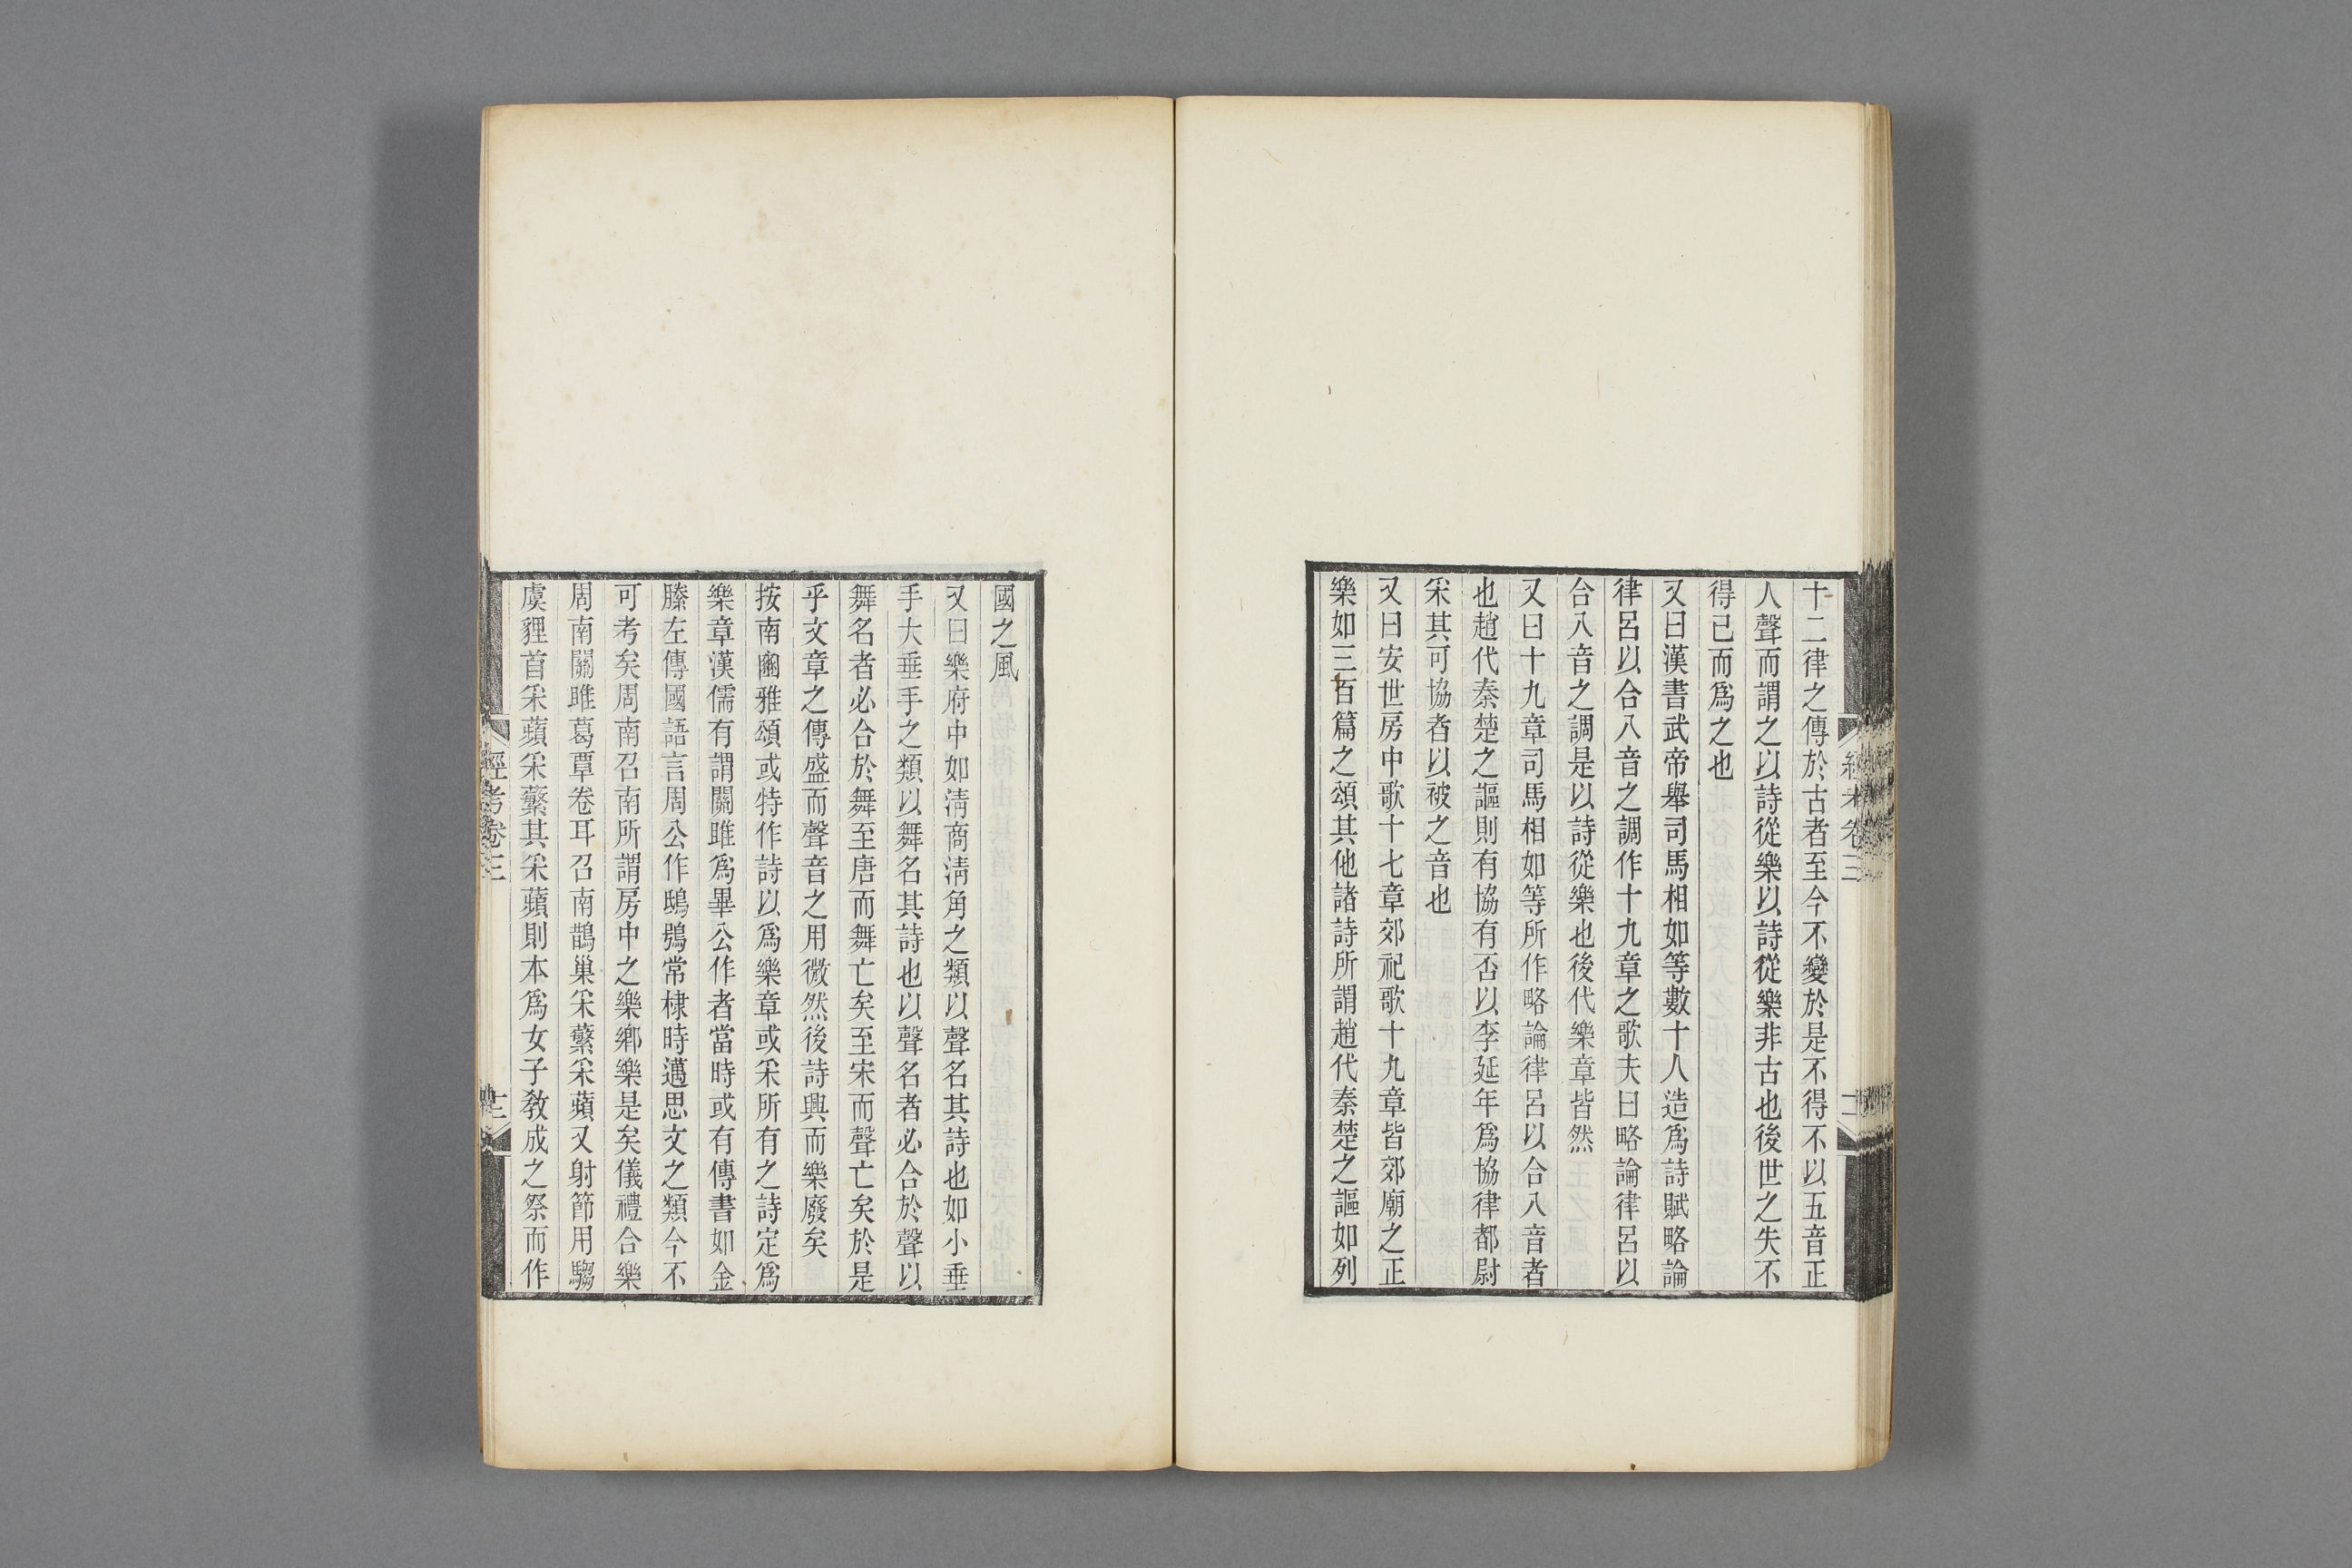 十二律之傳於古者至今不變於是不得不以五音正
人聲而謂之以詩從樂以詩從樂非古也後世之失不
得已而爲之也
又曰漢書武帝舉司馬相如等數十人造爲詩賦略論
律呂以合八音之調作十九章之歌夫曰略論律呂以
合八音之調是以詩從樂也後代樂章皆然
又曰十九章司馬相如等所作略論律呂以合八音者
也趙代秦楚之謳則有協有否以李延年爲協律都尉
采其可協者以被之音也
又曰安世房中歌十七章郊祀歌十九章皆郊廟之正
樂如三百篇之頌其他諸詩所謂趙代秦楚之謳如列
國之風
又曰樂府中如淸商淸角之類以聲名其詩也如小垂
手大垂手之類以舞名其詩也以聲名者必合於聲以
舞名者必合於舞至唐而舞亡矣至宋而聲亡矣於是
乎文章之傳盛而聲音之用微然後詩興而樂廢矣
按南豳雅頌或特作詩以爲樂章或采所有之詩定爲
樂章漢儒有謂關雎爲畢公作者當時或有傳書如金
縢左傳國語言周公作鴟鴞常棣時邁思文之類今不
可考矣周南召南所謂房中之樂鄉樂是矣儀禮合樂
周南關雎葛覃卷耳召南鵲巢采蘩采蘋又射節用騶
虞貍首采蘋采蘩其采蘋則本爲女子教成之祭而作
經考卷三